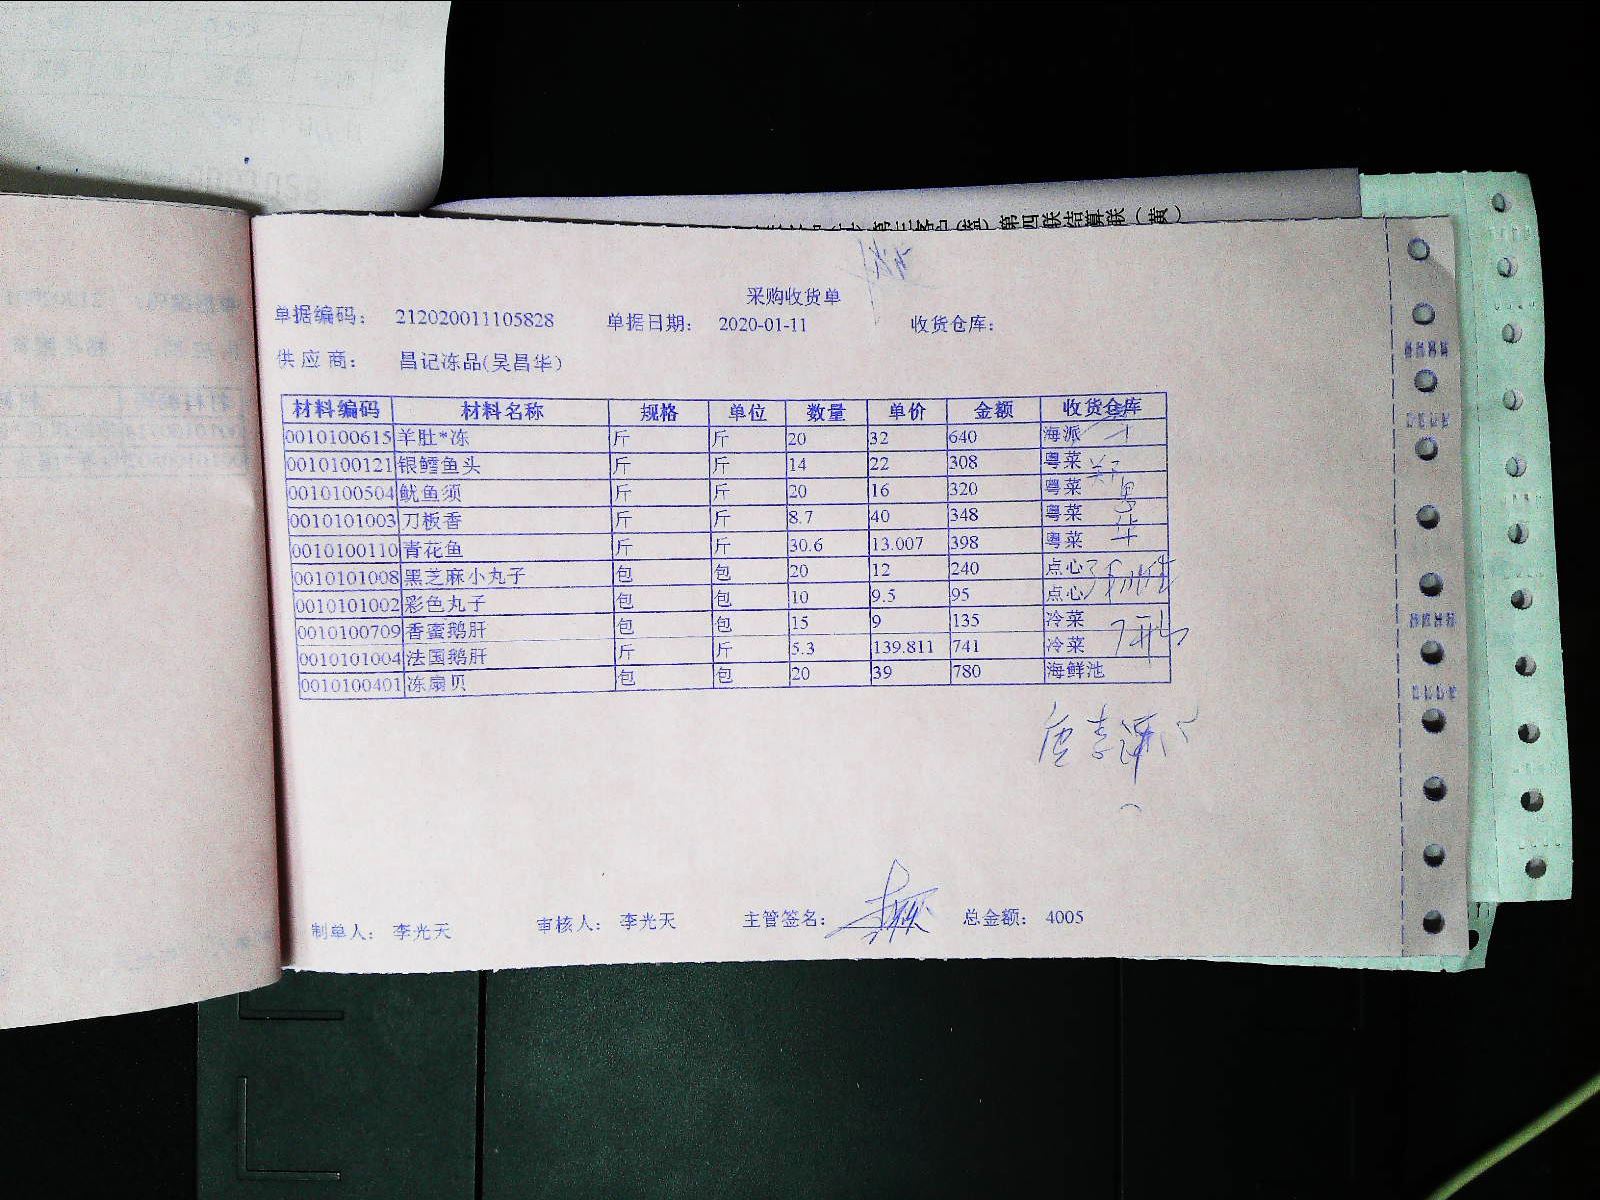 第四联结算联（黄）
采购收货单
单据编码： 212020011105828 单据日期： 2020-01-11 收货仓库：
供应商： 昌记冻品(吴昌华)
材料编码 材料名称 规格 单位 数量 单价 金额 收货仓库
0010100615 羊肚*冻 斤 斤 20 32 640 海派
0010100121 银鳕鱼头 斤 斤 14 22 308 粤菜
0010100504 鱿鱼须 斤 斤 20 16 320 粤菜
0010101003 刀板香 斤 斤 8.7 40 348 粤菜
0010100110 青花鱼 斤 斤 30.6 13.007 398 粤菜
0010101008 黑芝麻小丸子 包 包 20 12 240 点心
0010101002 彩色丸子 包 包 10 9.5 95 点心
0010100709 香蜜鹅肝 包 包 15 9 135 冷菜
0010101004 法国鹅肝 斤 斤 5.3 139.811 741 冷菜
0010100401 冻扇贝 包 包 20 39 780 海鲜池
制单人： 李光天 审核人： 李光天 主管签名： 总金额： 4005